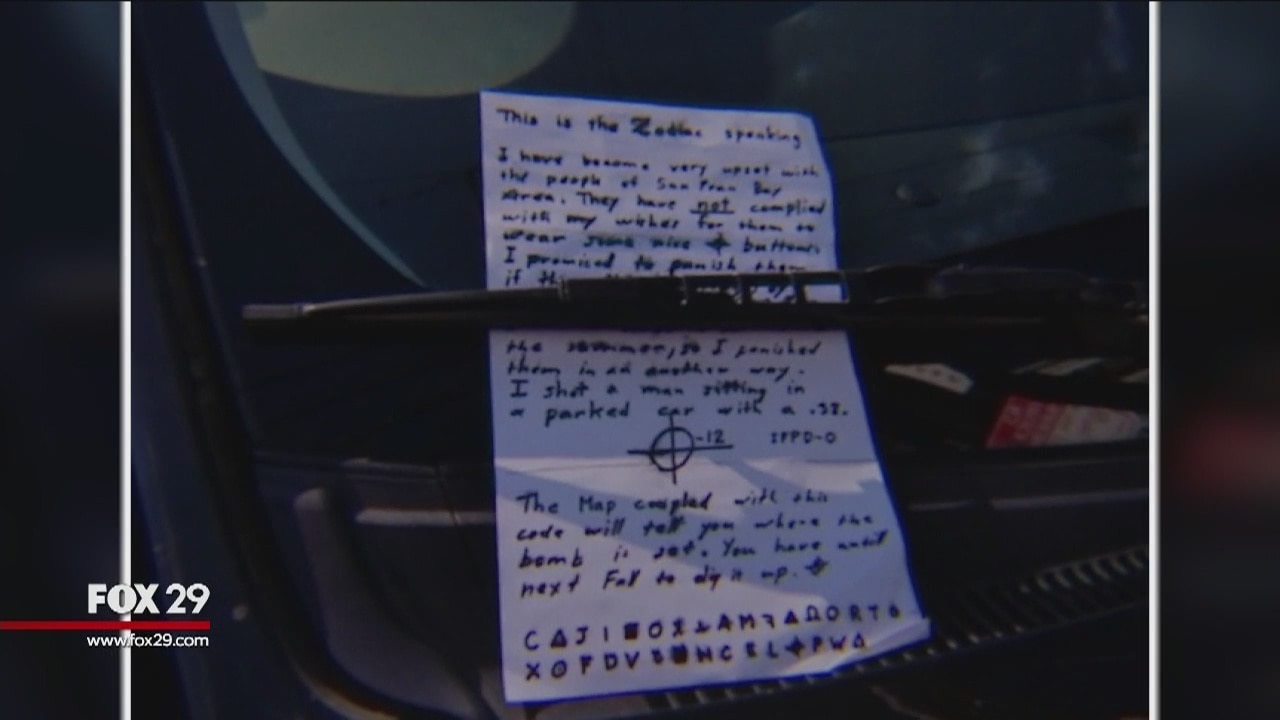 This is the Zodiac speaking
I have become very upset with
the people of San Fran Bay
Area. They have not complied
with my wishes for them to
wear some nice ⌖ buttons.
I promised to punish them
if
the summer, so I punished
them in an another way.
I shot a man sitting in
a parked car with a .38.
⌖-12 SFPD-0
The Map coupled with this
code will tell you where the
bomb is set. You have until
next Fall to dig it up. ⌖
C Δ J I ■ O A M Δ Ω O R T
X F D V N C E L ⌖ P W Δ
FOX 29
www.fox29.com